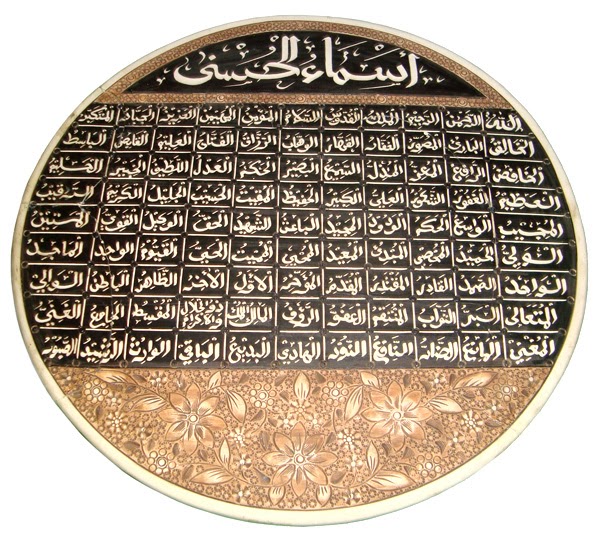 أسماء الحسنى
الله الرحمن الرحيم الملك القدوس السلام المؤمن المهيمن العزيز الجبار المتكبر
الخالق البارئ المصور الغفار القهار الوهاب الرزاق الفتاح العليم القابض الباسط
الخافض الرافع المعز المذل السميع البصير الحكم العدل اللطيف الخبير الحليم
العظيم الغفور الشكور العلي الكبير الحفيظ المقيت الحسيب الجليل الكريم الرقيب
المجيب الواسع الحكيم الودود المجيد الباعث الشهيد الحق الوكيل القوي المتين
الولي الحميد المحصي المبدئ المعيد المحيي المميت الحي القيوم الواجد الماجد
الواحد الصمد القادر المقتدر المقدم المؤخر الأول الآخر الظاهر الباطن الوالي
المتعالي البر التواب المنتقم العفو الرؤف مالك الملك ذو الجلال والإكرام المقسط الجامع الغني
المغني المانع الضار النافع النور الهادي البديع الباقي الوارث الرشيد الصبور